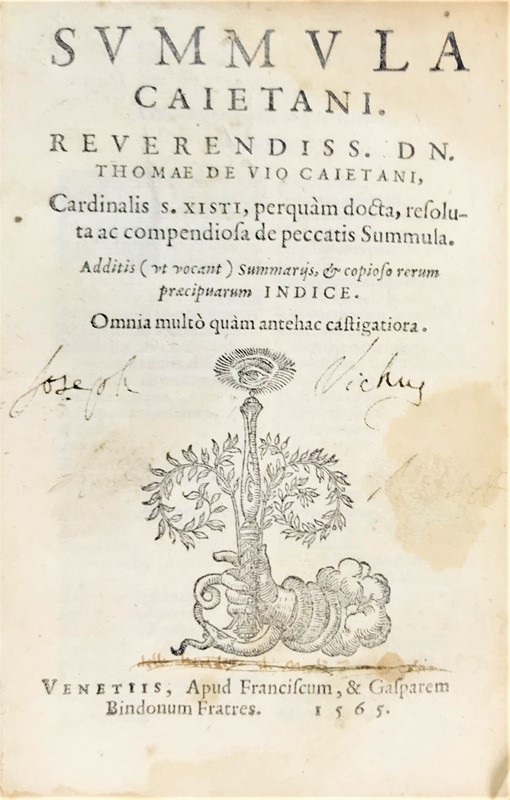 SVMMVLA
CAIETANI.
REVERENDISS. DN.
THOMAE DE VIO CAIETANI,
Cardinalis S. XISTI, perquàm docta, resolu-
ta ac compendiosa de peccatis Summula.
Additis (vt vocant) Summarijs, & copioso rerum
præcipuarum INDICE.
Omnia multò quàm antehac castigatiora.
Joseph
VENETIIS, Apud Franciscum, & Gasparem
Bindonum Fratres. 1565.